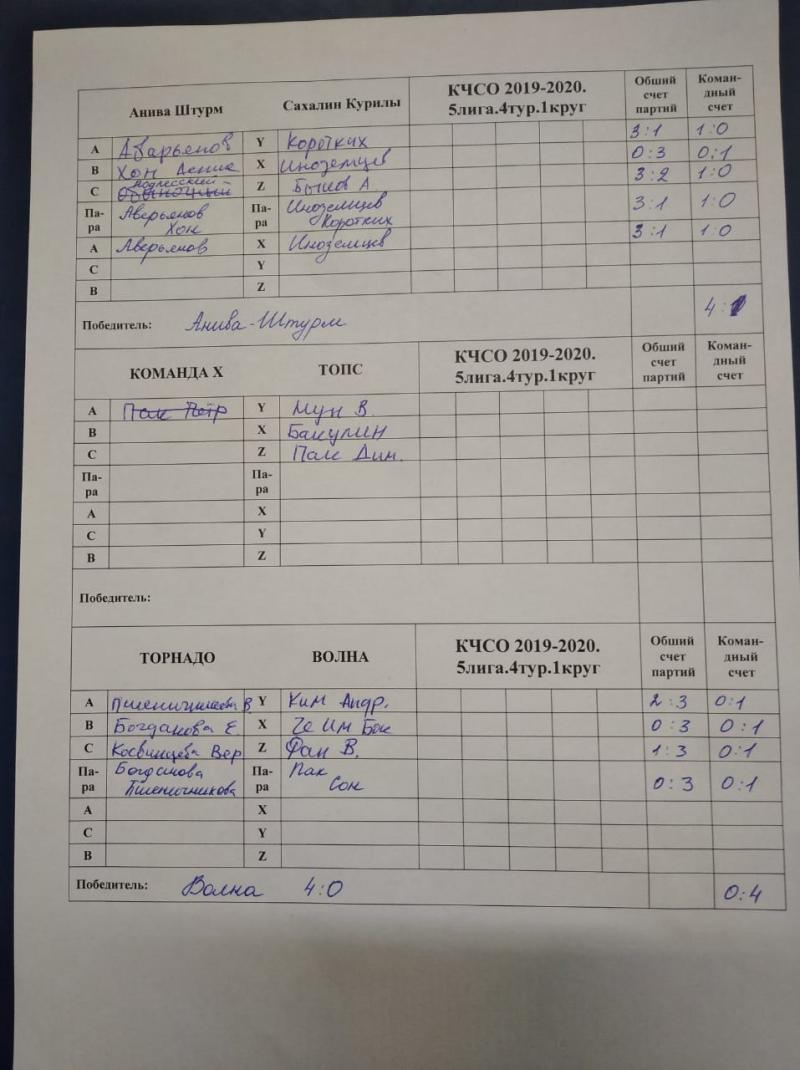 Анива Штурм Сахалин Курилы КЧСО 2019-2020. 5лига.4тур.1круг Общий счет партий Коман-дный счет
A Аварьянов Y Коротких 3:1 1:0
B Хон Денис X Иноземцев 0:3 0:1
C Подлесский Z Бышов А 3:2 1:0
Па-ра Аверьянов Хон Па-ра Иноземцев Коротких 3:1 1:0
A Аверьянов X Иноземцев 3:1 1:0
C Y
B Z
Победитель: Анива-Штурм 4:1
КОМАНДА X ТОПС КЧСО 2019-2020. 5лига.4тур.1круг Общий счет партий Коман-дный счет
A Пак Петр Y Мун В
B X Бакулин
C Z Пак Дим.
Па-ра Па-ра
A X
C Y
B Z
Победитель:
ТОРНАДО ВОЛНА КЧСО 2019-2020. 5лига.4тур.1круг Общий счет партий Коман-дный счет
A Пшеничникова В. Y Ким Андр. 2:3 0:1
B Богданова Е. X Че Им Бок 0:3 0:1
C Косвинцева Вер Z Фан В. 1:3 0:1
Па-ра Богданова Пшеничникова Па-ра Пак Сон 0:3 0:1
A X
C Y
B Z
Победитель: Волна 4:0 0:4